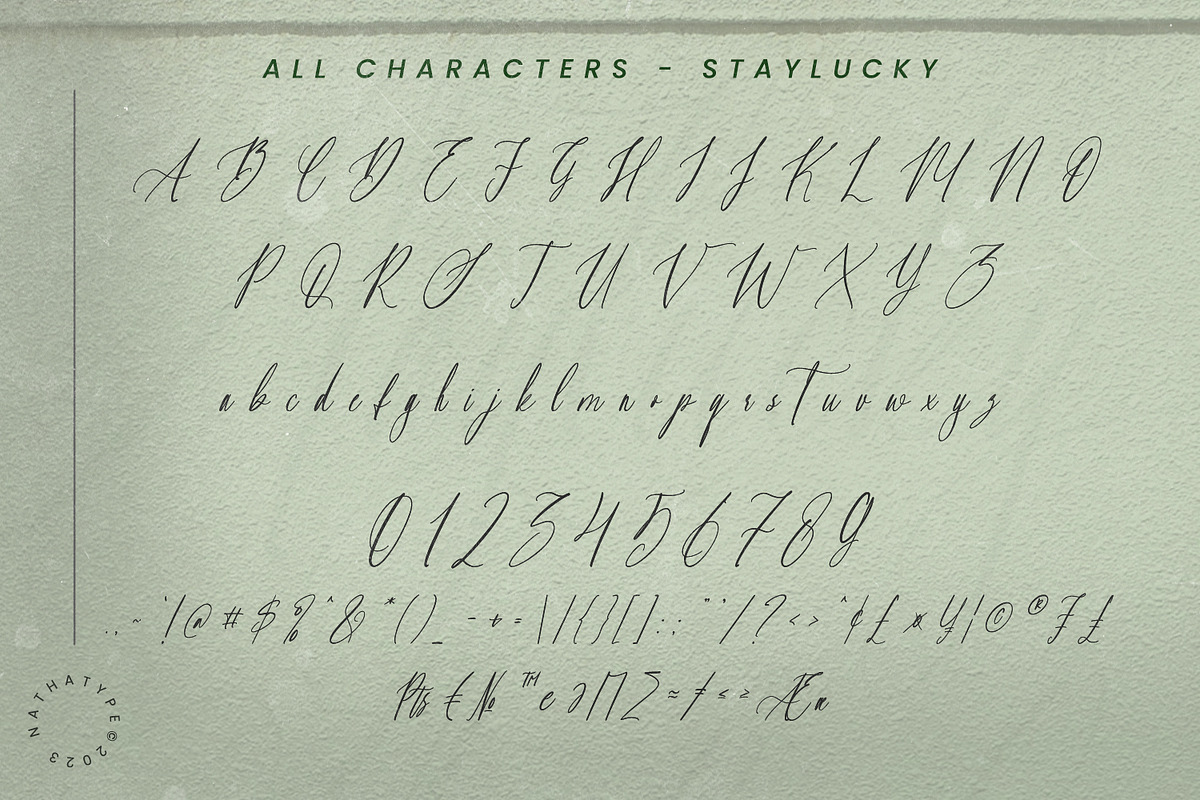 ALL CHARACTERS - STAYLUCKY
A B C D E F G H I J K L M N O
P Q R S T U V W X Y Z
a b c d e f g h i j k l m n o p q r s t u v w x y z
0 1 2 3 4 5 6 7 8 9
. , ~ ` ! @ # $ % ^ & * ( ) _ - + = \ | { } [ ] : ; " ' / ? < > ^ ¢ £ ¤ ¥ ¦ © ® ₣ ₤
₧ € № ™ e ∂ ∏ ∑ ≈ ≠ ≤ ≥ Æ
NATHATYPE©2023